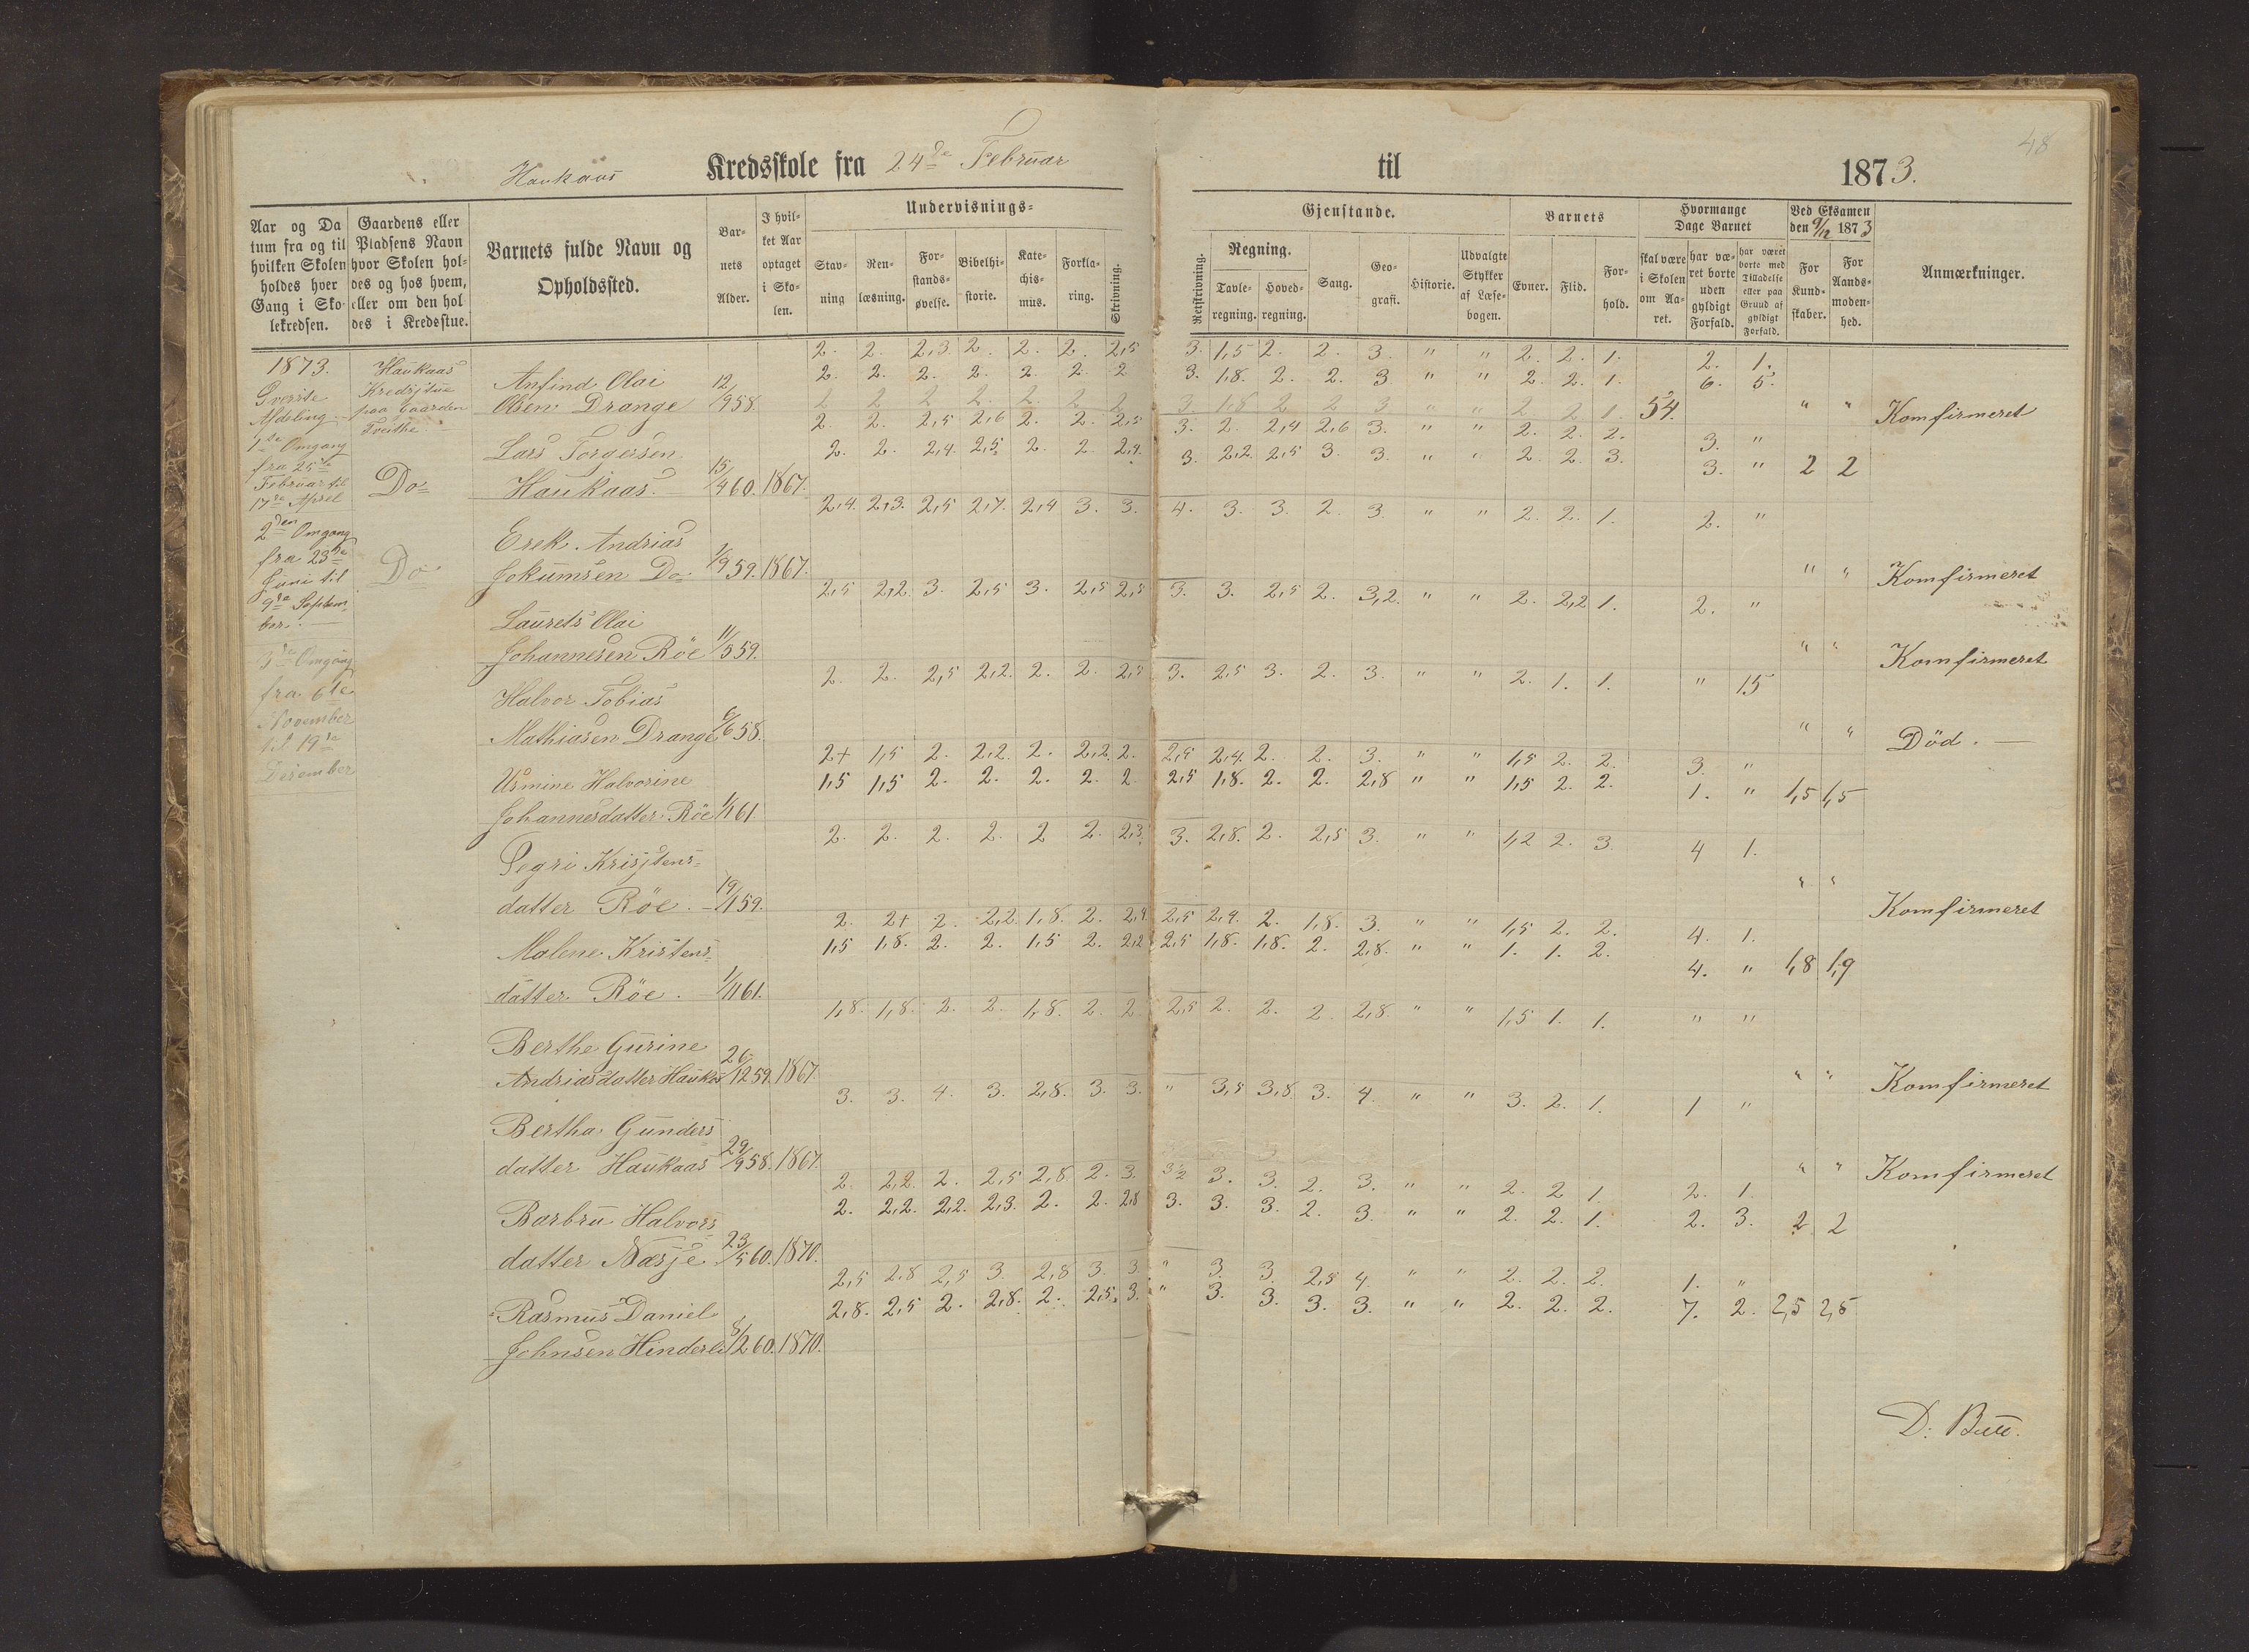 48
Haukaas Kredsskole fra 24de Februar til 1873.
Aar og Da
tum fra og til
hvilken Skolen
holdes hver
Gang i Sko-
lekredsen.
Gaardens eller
Pladsens Navn
hvor Skolen hol-
des og hos hvem,
eller om den hol
des i Kredsstue.
Barnets fulde Navn og
Opholdssted.
Bar-
nets
Alder.
I hvil-
ket Aar
optaget
i Sko-
len.
Undervisnings-
Stav-
ning
Ren-
læsning.
For-
stands-
øvelse.
Bibelhi-
storie.
Kate-
chis-
mus.
Forkla-
ring.
Skrivning.
Gjenstande.
Retskrivning.
Regning.
Tavle-
regning.
Hoved-
regning.
Sang.
Geo-
grafi.
Historie.
Udvalgte
Stykker
af Læse-
bogen.
Barnets
Evner.
Flid.
For-
hold.
Hvormange
Dage Barnet
skal være
i Skolen
om Aa-
ret.
har væ-
ret borte
uden
gyldigt
Forfald.
har været
borte med
Tilladelse
eller paa
Grund af
gyldigt
Forfald.
Ved Eksamen
den 9/12 1873
For
Kund-
skaber.
For
Aands-
moden-
hed.
Anmærkninger.
1873.
Øverste
Afdeling
1ste Omgang
fra 25de
Februar til
17de April
2den Omgang
fra 23de
Juni til
9de Septem-
ber. —
3de Omgang
fra 6te
November
til 19de
Desember
Haukaas
Kredsstue
paa Gaarden
Tveithe
Do
Do
2. 2. 2,3 2. 2. 2. 2,5 3. 1,5 2. 2. 3. " " 2. 2. 1. 2. 1.
Anfind Olai 2. 2. 2. 2. 2. 2. 2 3. 1,8. 2. 2. 3 " " 2. 2. 1. 6. 5.
Olsen Drange 12/9 58. 2 2 2 2. 2. 2 2 3. 1,8 2 2 3 " " 2 2 1. 54. " " Komfirmeret
2. 2. 2,5 2,6 2. 2. 2,5 3. 2. 2,4 2,6 3. " " 2. 2. 2. 3. "
Lars Torgersen 2. 2. 2,4. 2,5 2. 2. 2,4. 3. 2,2. 2,5 3. 3. " " 2. 2. 3. 3. " 2 2
Haukaas. 15/4 60. 1867.
2,4. 2,3. 2,5 2,7. 2,4 3. 3. 4. 3. 3. 2. 3. " " 2. 2. 1. 2. "
Erek Andrias
Jokumsen Do 1/9 59. 1867. " " Komfirmeret
2,5 2,2. 3. 2,5 3. 2,5 2,5 3. 3. 2,5 2. 3,2. " " 2. 2,2 1. 2. "
Laurets Olai
Johannesen Röe 11/5 59. " " Komfirmeret
2. 2. 2,5 2,2. 2. 2. 2,5 3. 2,5 3. 2. 3. " " 2. 1. 1. " 15
Halvor Tobias
Mathiasen Drange 6/6 58. " " Död. —
2+ 1,5 2. 2,2. 2. 2,2. 2. 2,5 2,4. 2. 2. 3. " " 1,5 2. 2. 3. "
Usmine Halvorine 1,5 1,5 2. 2. 2. 2. 2. 2,5 1,8. 2. 2. 2,8 " " 1,5 2. 2. 1. " 1,5 1,5
Johannesdatter Röe 1/1 61.
2. 2. 2. 2. 2 2. 2,3. 3. 2,8. 2. 2,5 3. " " 1,2 2. 3. 4 1.
Pegri Kristens-
datter Röe. 19/1 59. " " Komfirmeret
2. 2+ 2. 2,2. 1,8. 2. 2,4. 2,5 2,4. 2. 1,8. 3. " " 1,5 2. 2. 4. 1.
Malene Kristens- 1,5 1,8. 2. 2. 1,5 2. 2,2 2,5 1,8. 1,8. 2. 2,8. " " 1. 1. 2. 4. " 1,8 1,9
datter Röe. 1/1 61.
1,8. 1,8. 2. 2. 1,8. 2. 2. 2,5 2. 2. 2. 2,8. " " 1,5 1. 1. " "
Berthe Gurine
Andriasdatter Haukas 26/12 59. 1867. " " Komfirmeret
3. 3. 4. 3. 2,8. 3. 3. " 3,5 3,8 3. 4. " " 3. 2. 1. 1 "
Bertha Gunders
datter Haukaas 29/9 58. 1867. " " Komfirmeret
2. 2,2. 2. 2,5 2,8 2. 3. 3½ 3. 3. 2. 3. " " 2. 2 1. 2. 1.
Barbru Halvors 2. 2,2. 2,2. 2,3. 2. 2. 2,8 3. 3. 3. 2. 3. " " 2. 2. 1. 2. 3. 2 2
datter Næsje 23/5 60. 1870.
2,5 2,8 2,5 3. 2,8 3. 3. " 3. 3. 2,5 4. " " 2. 2. 2. 1. "
Rasmus Daniel 2,8. 2,5 2. 2,8. 2. 2,5. 3. " 3. 3. 3. 3. " " 2. 2. 2. 7. 2. 2,5 2,5
Johnsen Hinderli 8/2 60. 1870.